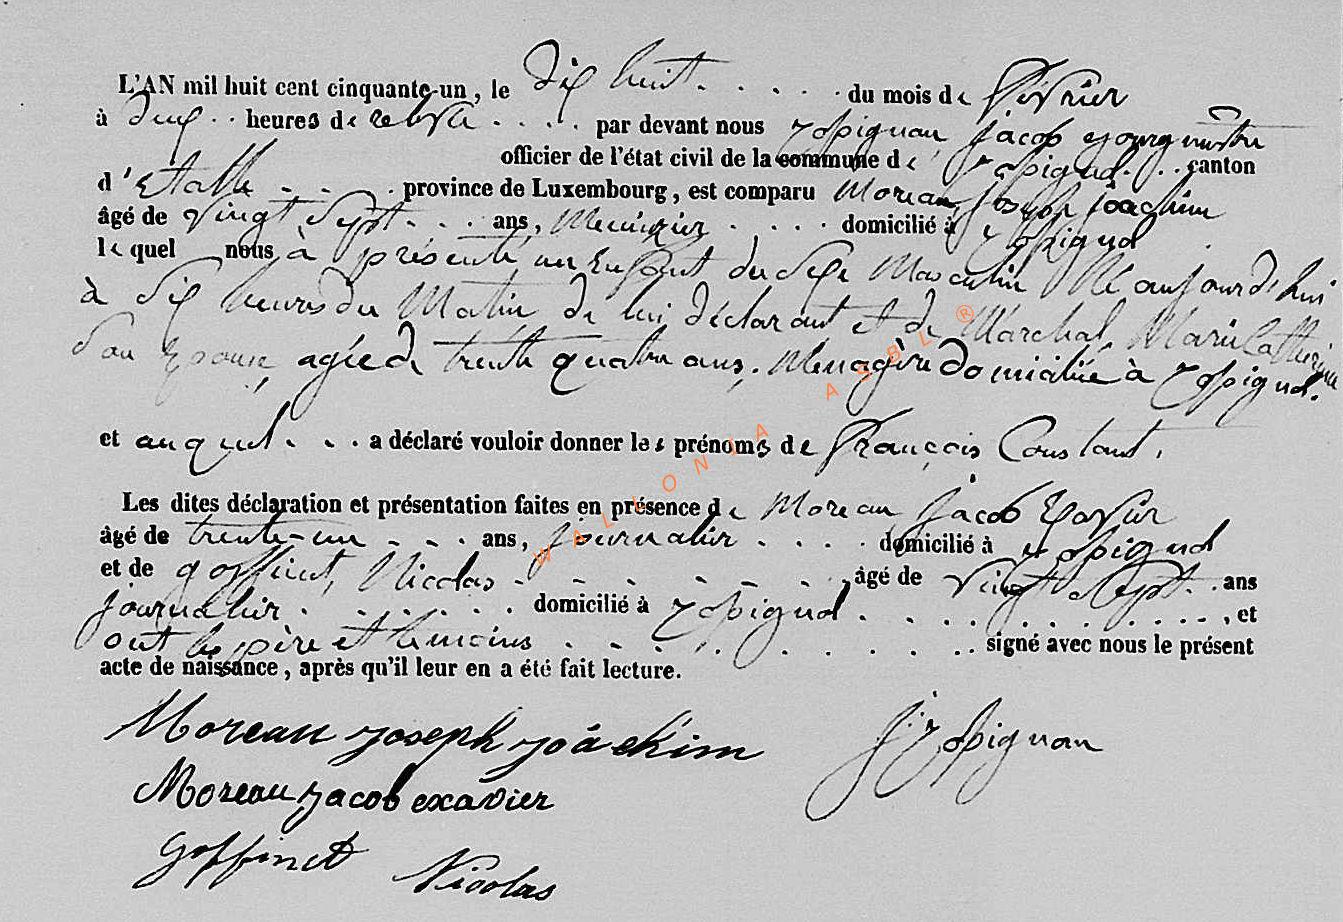 L'AN mil huit cent cinquante-un, le dix huit . . . . . du mois de février
à deux . . heures de relevée . . . . par devant nous Jacob Bourgmestre
officier de l'état civil de la commune d . . canton
d'Etalle . . . . province de Luxembourg, est comparu Moreau, Joseph Joachim
âgé de vingt sept . . . ans, Meunier . . . . domicilié à
le quel nous à présenté un Enfant du sexe Masculin Né aujourd'hui
à dix heures du Matin de lui déclarant et de Marchal, Marie Catherine
Son Epouse, agée de trente quatre ans, Ménagère domiciliée à
et auquel . . . a déclaré vouloir donner les prénoms de François Constant.
Les dites déclaration et présentation faites en présence de Moreau, Jacob Exavier
âgé de trente-un . . . . ans, journalier . . . . domicilié à
et de goffinet, Nicolas . . . . . . . âgé de vingt Sept . . ans
journalier . . . . . . . domicilié à . . . . . . . . . . , et
ont les père et témoins . . . . . . . . . signé avec nous le présent
acte de naissance, après qu'il leur en a été fait lecture.
Moreau joseph joachim
Moreau jacob exavier
Goffinet Nicolas
WALLONIA ASBL ®